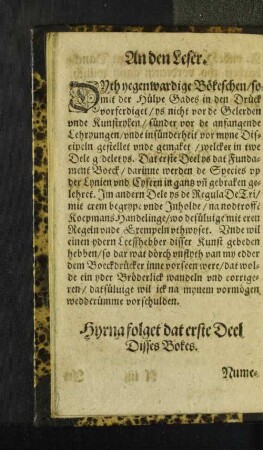 An den Leser.
DYth yegenwardige Bökeschen / so
mit der Hülpe Gades in den Drück
vorferdiget / ys nicht vor de Gelerden
vnde Kunstryken / sünder vor de anfangende
Lehrjungen / vnde insünderheit vor myne Dis-
cipeln gestellet vnde gemaket / welcker in twe
Dele gedelet ys. Dat erste Deel ys dat Funda-
ment Boeck / darinne werden de Species vp
der Lynien vnd Cyfern in gantz vñ gebraken ge-
lehret. Jm andern Dele ys de Regula De Tri /
mit erem begryp: vnde Jnholde / na nodtrofft
Koepmans Handelinge / wo desüluige mit eren
Regeln vnde Exempeln vthwyset. Vnde wil
einen ydern Leeffhebber disser Kunst gebeden
hebben / so dar wat dörch vnflyth van my edder
dem Boeckdrücker inne vorseen were / dat wol-
de ein yder Bröderlick wandeln vnd corrige-
ren / datsüluige wil ick na mynem vormögen
wedderümme vorschulden.
Hyrna folget dat erste Deel
Disses Bokes.
Nume-